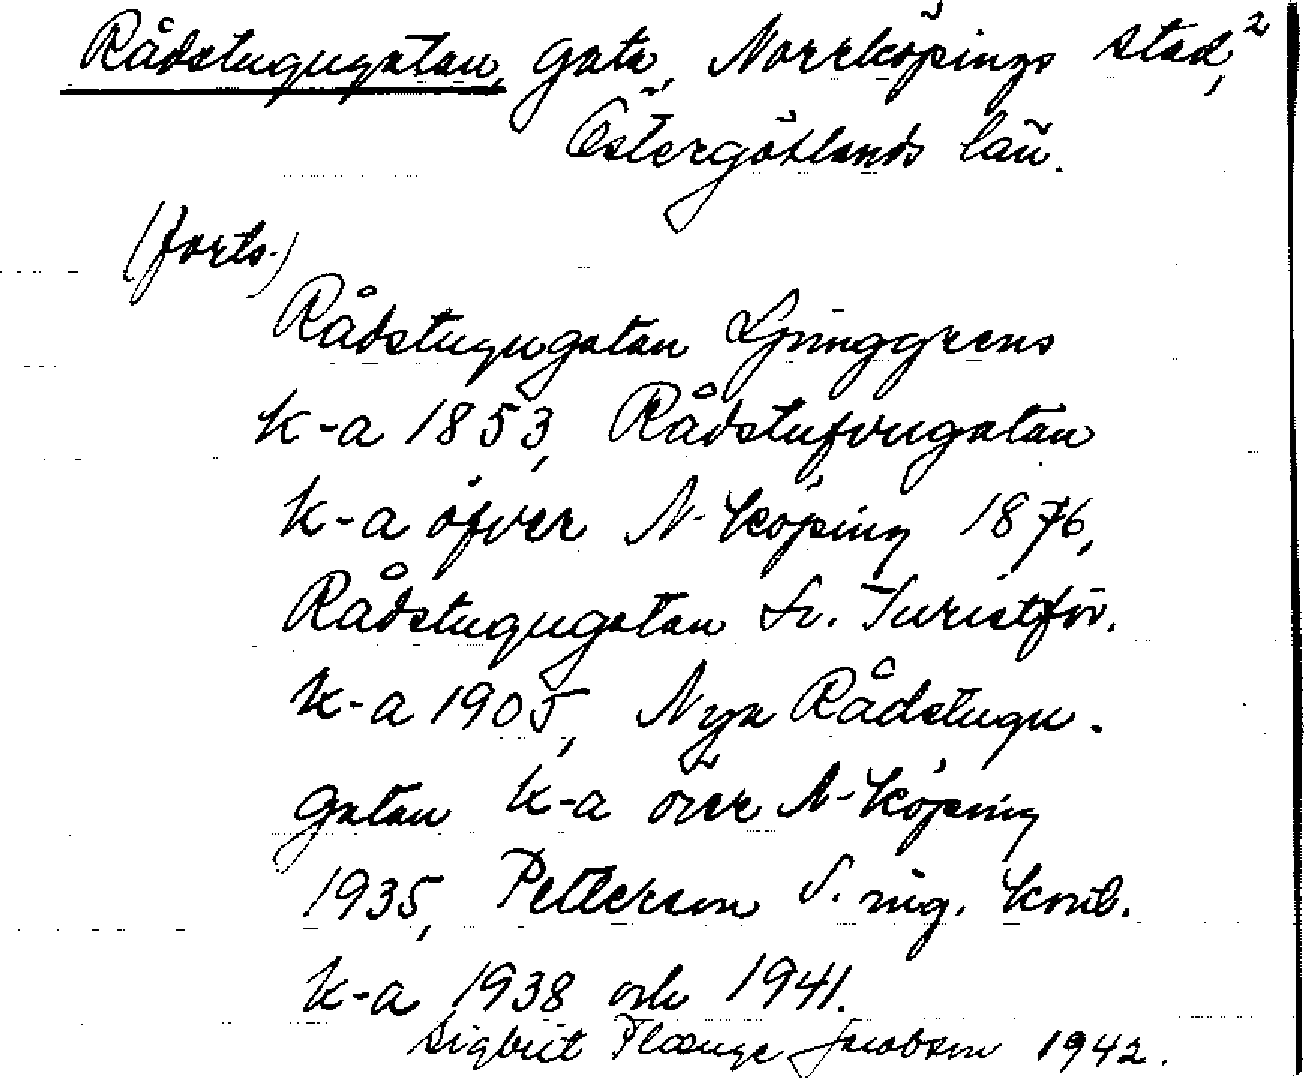 Rådstugugatan, gata, Norrköpings stad,²
Östergötlands län.
(forts.)
Rådstugugatan Ljunggrens
k-a 1853, Rådstufvugatan
k-a öfver N-köping 1876,
Rådstugugatan Sv. Turistför.
k-a 1905, Nya Rådstugu-
gatan k-a över N-köping
1935, Petterson S. ing. kont.
k-a 1938 och 1941.
Sigbrit Plænge Jacobson 1942.